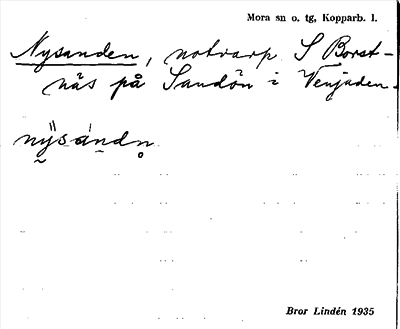 Mora sn o. tg, Kopparb. l.
Nysanden, notvarp S Borst-
näs på Sandön i Venjaden.
nÿsándn̥
Bror Lindén 1935